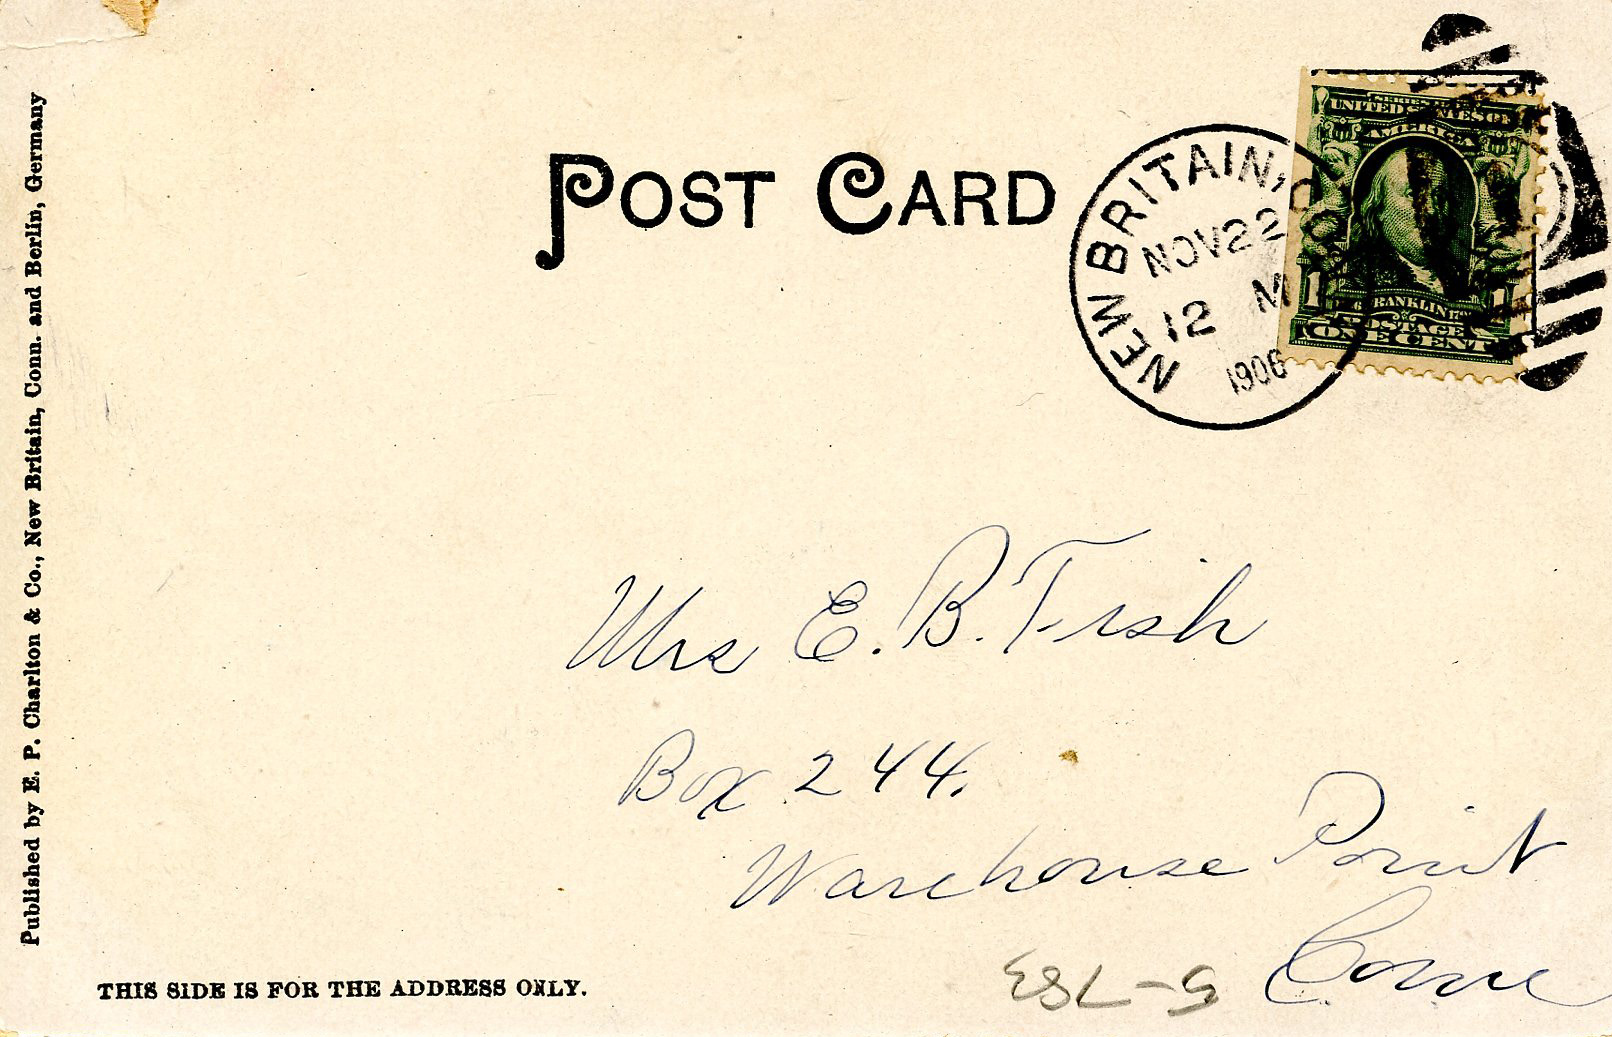 POST CARD
NEW BRITAIN,
NOV 22
12 M
1906
SERIES 1902
UNITED STATES OF
AMERICA
1 FRANKLIN 1
POSTAGE
ONE CENT
Mrs E. B. Fish
Box 244.
Warehouse Point
Conn
THIS SIDE IS FOR THE ADDRESS ONLY.
Published by E. P. Charlton & Co., New Britain, Conn. and Berlin, Germany